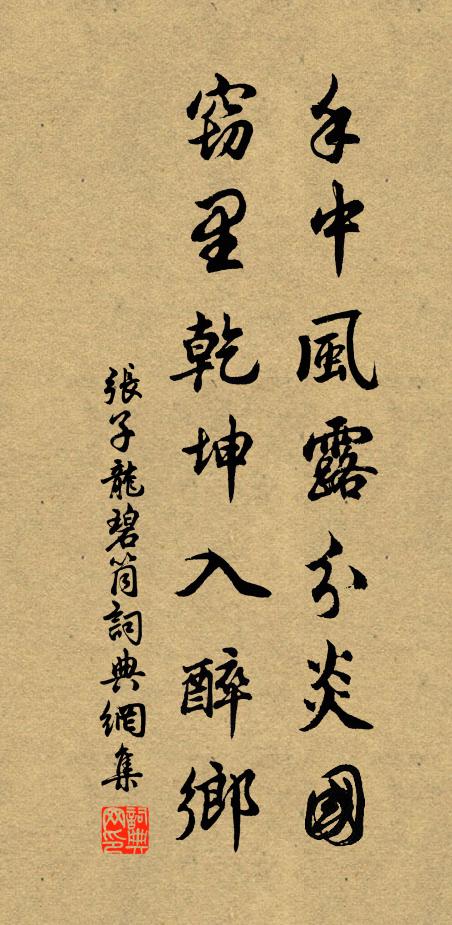 手中風露分炎國
竊里乾坤入醉鄉
張子龍碧筒詞典網集
詞典网印